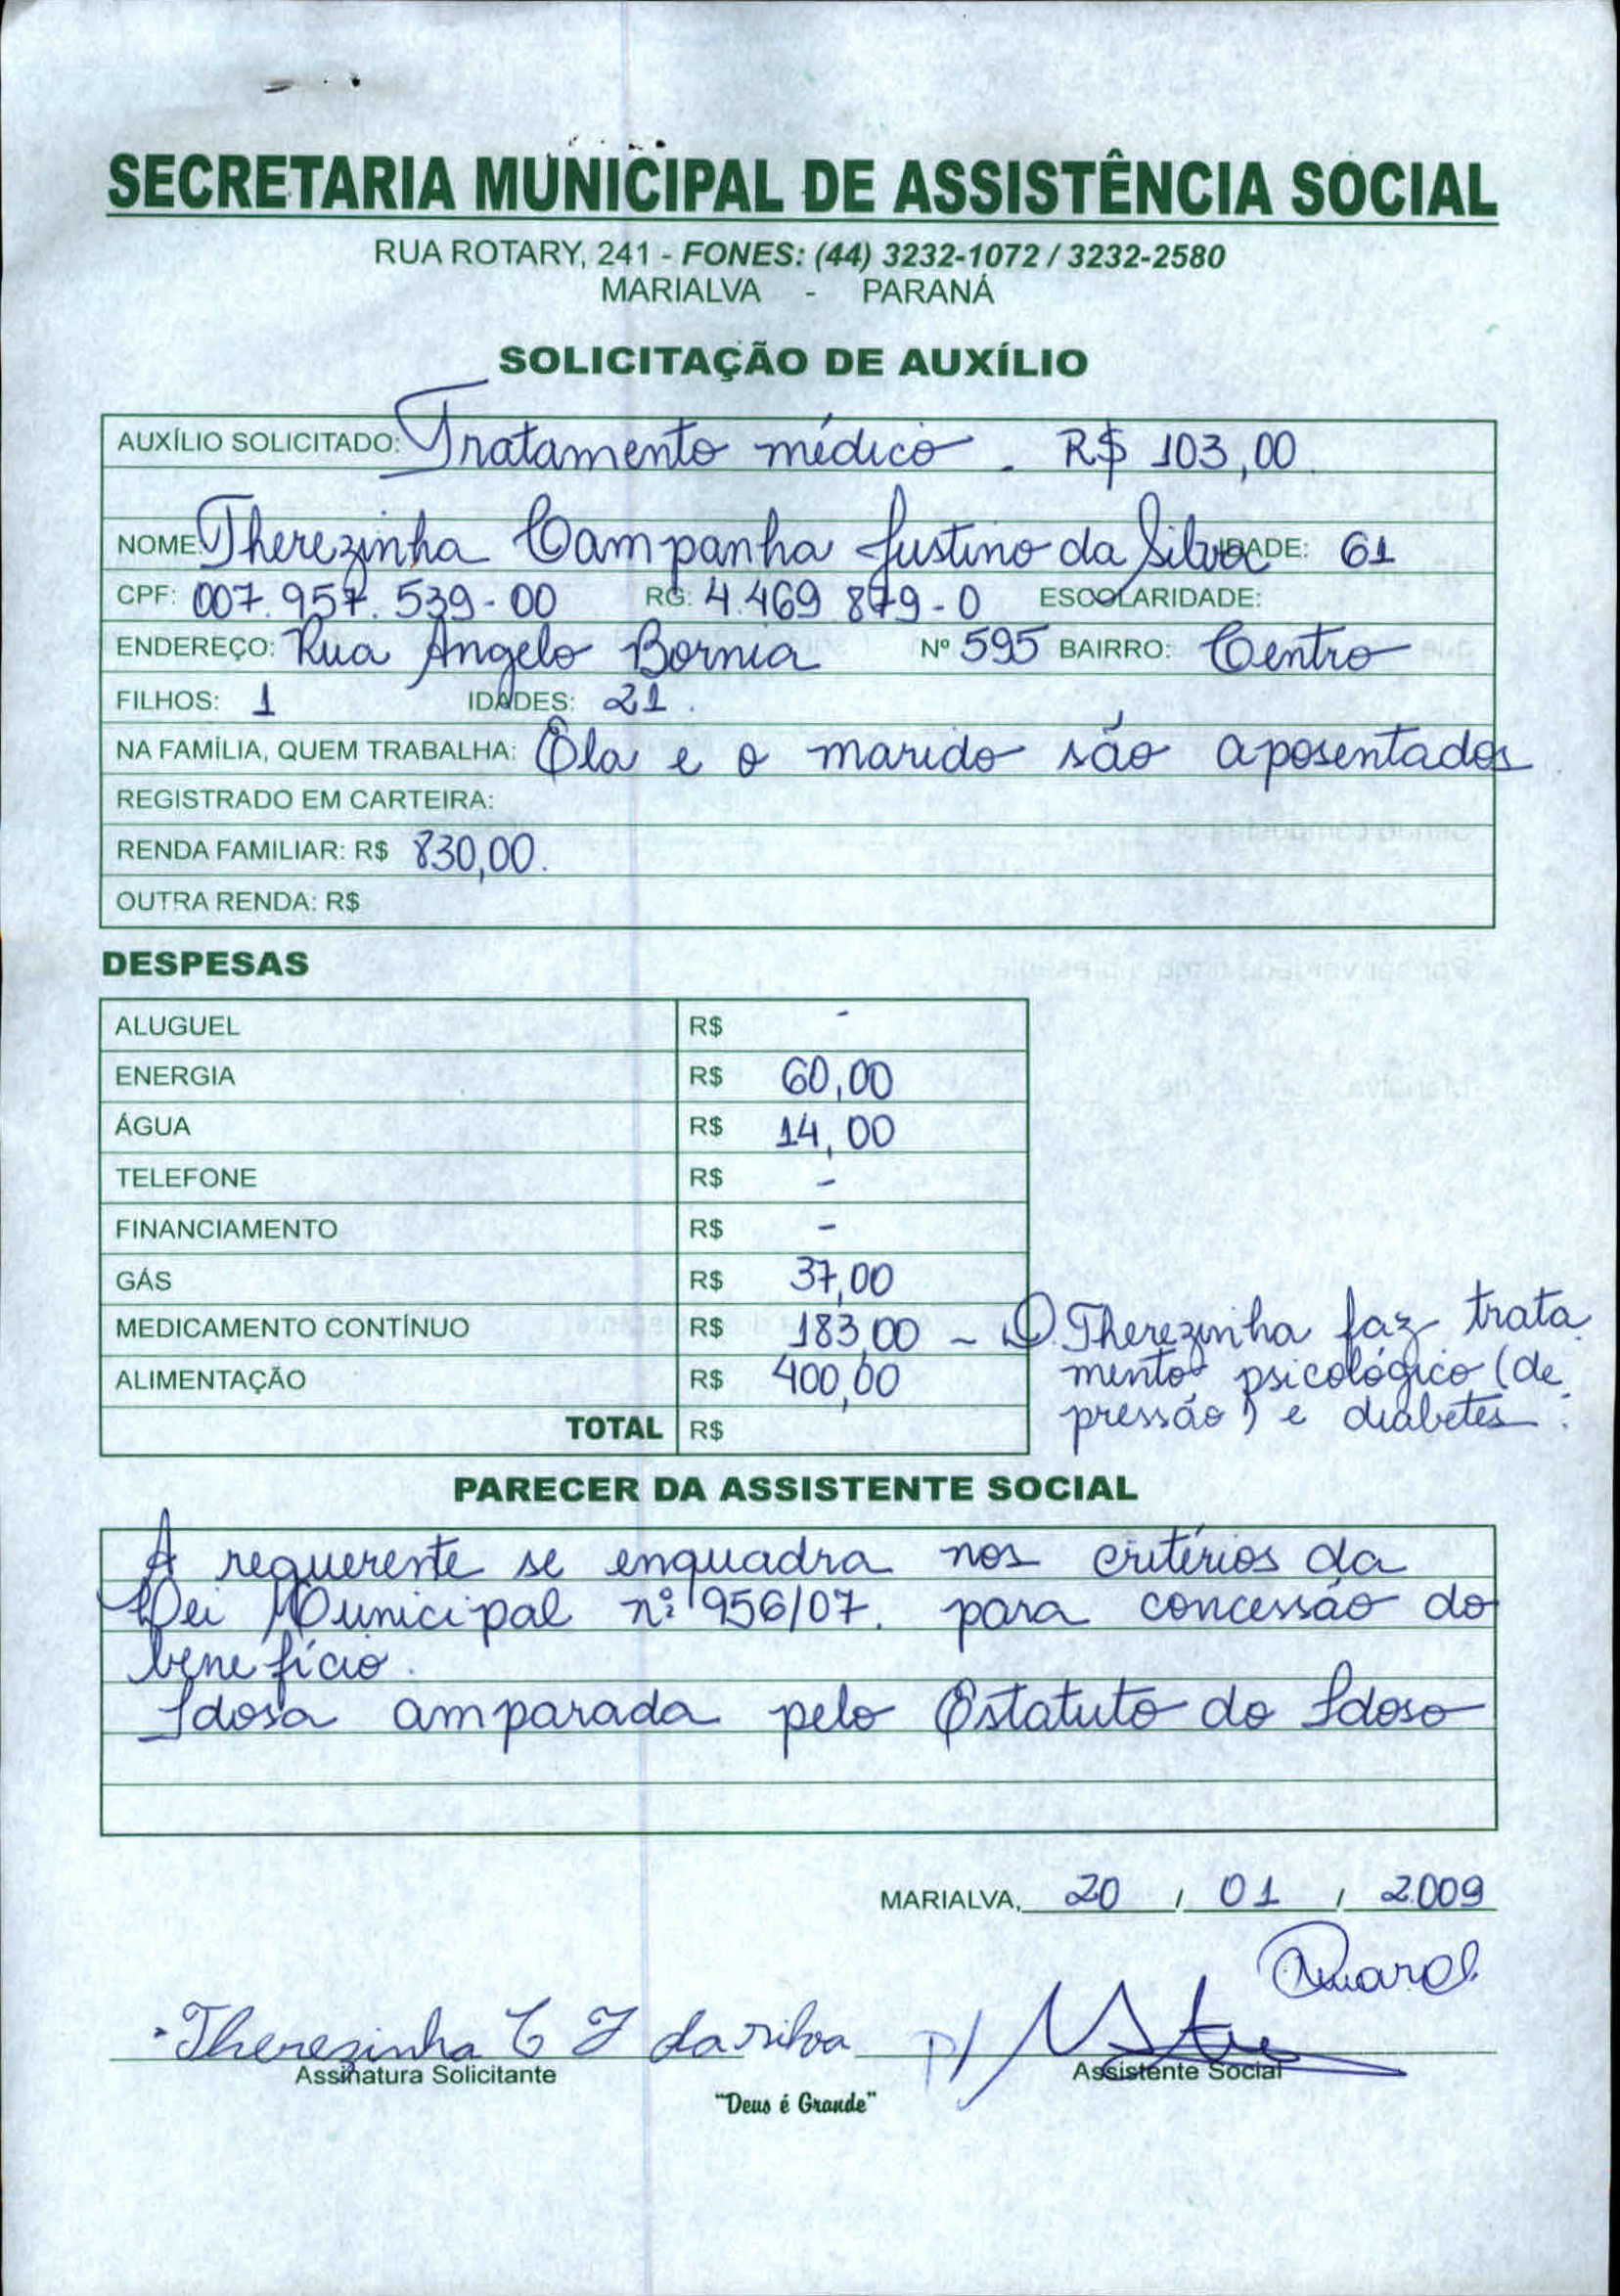 SECRETARIA MUNICIPAL DE ASSISTÊNCIA SOCIAL
RUA ROTARY, 241 - FONES: (44) 3232-1072 / 3232-2580
MARIALVA - PARANÁ
SOLICITAÇÃO DE AUXÍLIO
AUXÍLIO SOLICITADO: Tratamento médico . R$ 103,00
NOME: Therezinha Campanha Justino da Silva IDADE: 61
CPF: 007.957.539-00 RG: 4.469 879-0 ESCOLARIDADE:
ENDEREÇO: Rua Angelo Bornia Nº 595 BAIRRO: Centro
FILHOS: 1 IDADES: 21.
NA FAMÍLIA, QUEM TRABALHA: Ela e o marido são aposentados
REGISTRADO EM CARTEIRA:
RENDA FAMILIAR: R$ 830,00.
OUTRA RENDA: R$
DESPESAS
ALUGUEL R$ -
ENERGIA R$ 60,00
ÁGUA R$ 14,00
TELEFONE R$ -
FINANCIAMENTO R$ -
GÁS R$ 37,00
MEDICAMENTO CONTÍNUO R$ 183,00 - D. Therezinha faz trata
ALIMENTAÇÃO R$ 400,00 mento psicológico (de
TOTAL R$ pressão) e diabetes.
PARECER DA ASSISTENTE SOCIAL
A requerente se enquadra nos critérios da
Lei Municipal nº 956/07. para concessão do
benefício.
Idosa amparada pelo Estatuto do Idoso
MARIALVA, 20 / 01 / 2009
Therezinha C J da silva P/
Assinatura Solicitante Assistente Social
"Deus é Grande"